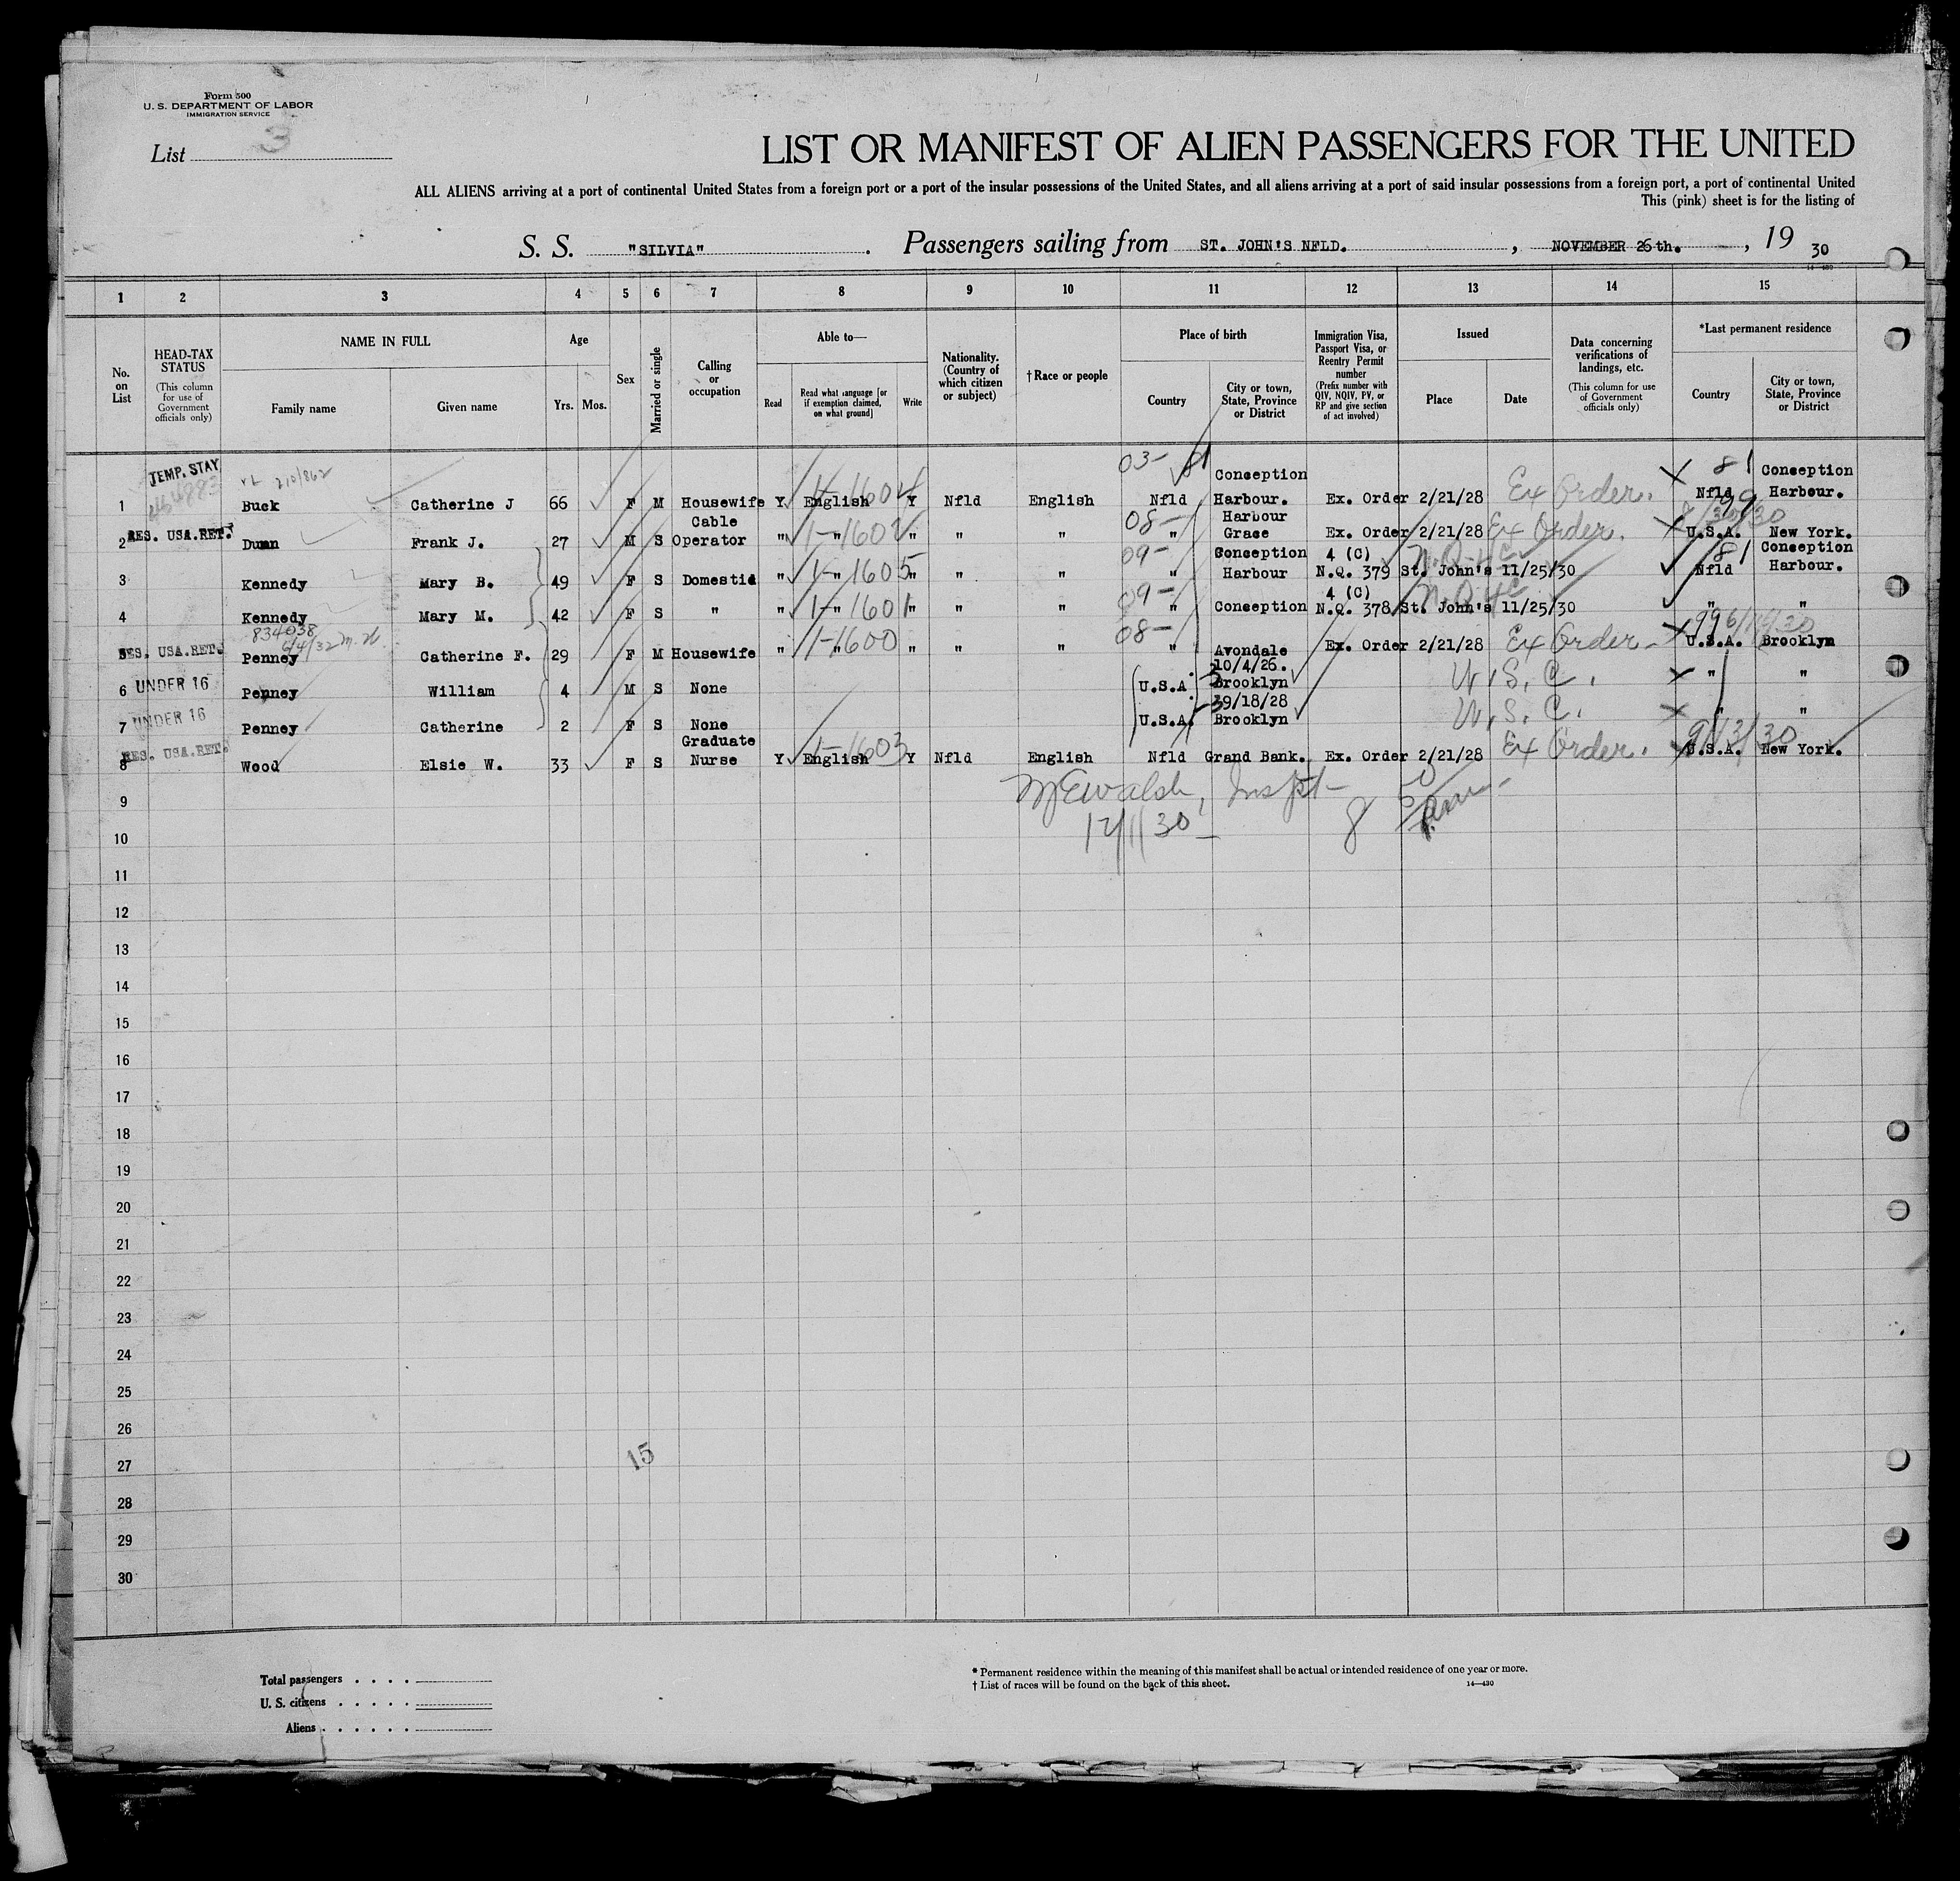 Form 500
U. S. DEPARTMENT OF LABOR
IMMIGRATION SERVICE
List 3
LIST OR MANIFEST OF ALIEN PASSENGERS FOR THE UNITED
ALL ALIENS arriving at a port of continental United States from a foreign port or a port of the insular possessions of the United States, and all aliens arriving at a port of said insular possessions from a foreign port, a port of continental United
This (pink) sheet is for the listing of
S. S. "SILVIA". Passengers sailing from ST. JOHN'S NFLD., NOVEMBER 26th., 19 30
14—430
1 2 3 4 5 6 7 8 9 10 11 12 13 14 15
No. on List
HEAD-TAX STATUS (This column for use of Government officials only)
NAME IN FULL
Family name Given name
Age
Yrs. Mos.
Sex
Married or single
Calling or occupation
Able to—
Read
Read what language [or if exemption claimed, on what ground]
Write
Nationality. (Country of which citizen or subject)
†Race or people
Place of birth
Country
City or town, State, Province or District
Immigration Visa, Passport Visa, or Reentry Permit number (Prefix number with QIV, NQIV, PV, or RP and give section of act involved)
Issued
Place Date
Data concerning verifications of landings, etc. (This column for use of Government officials only)
*Last permanent residence
Country
City or town, State, Province or District
TEMP. STAY 210/862 03- 81 81
1 Buck Catherine J 66 F M Housewife Y English 1-1604 Y Nfld English Nfld Conception Harbour. Ex. Order 2/21/28 Ex Order. Nfld Conception Harbour.
RES. USA.RET. 08- 99
2 Dunn Frank J. 27 M S Cable Operator " " 1-1602 " " " " Harbour Grace Ex. Order 2/21/28 Ex Order. U.S.A. New York.
09- 81
3 Kennedy Mary B. 49 F S Domestic " " 1-1605 " " " " Conception Harbour 4 (C) N.Q. 379 St. John's 11/25/30 N.Q-4C Nfld Conception Harbour.
09-
4 Kennedy Mary M. 42 F S " " " 1-1601 " " " " Conception 4 (C) N.Q. 378 St. John's 11/25/30 N.Q 4C " "
834038 6/4/32 08-
5 RES. USA.RET. Penney Catherine F. 29 F M Housewife " " 1-1600 " " " " Avondale Ex. Order 2/21/28 Ex Order- U.S.A. Brooklyn
6 UNDER 16 Penney William 4 M S None U.S.A. 10/4/26. Brooklyn U.S.C. " "
7 UNDER 16 Penney Catherine 2 F S None U.S.A. 9/18/28 Brooklyn U.S.C. " "
8 RES. USA.RET. Wood Elsie W. 33 F S Graduate Nurse Y English 1-1603 Y Nfld English Nfld Grand Bank. Ex. Order 2/21/28 Ex Order. U.S.A. New York.
9 McEwalsh, Inspt-
10 12/1/30 8
11
12
13
14
15
16
17
18
19
20
21
22
23
24
25
26
27 15
28
29
30
Total passengers
U. S. citizens
Aliens
* Permanent residence within the meaning of this manifest shall be actual or intended residence of one year or more.
† List of races will be found on the back of this sheet.
14—430